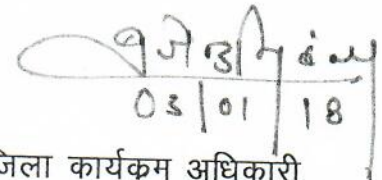 03/01/18
जिला कार्यकम अधिकारी